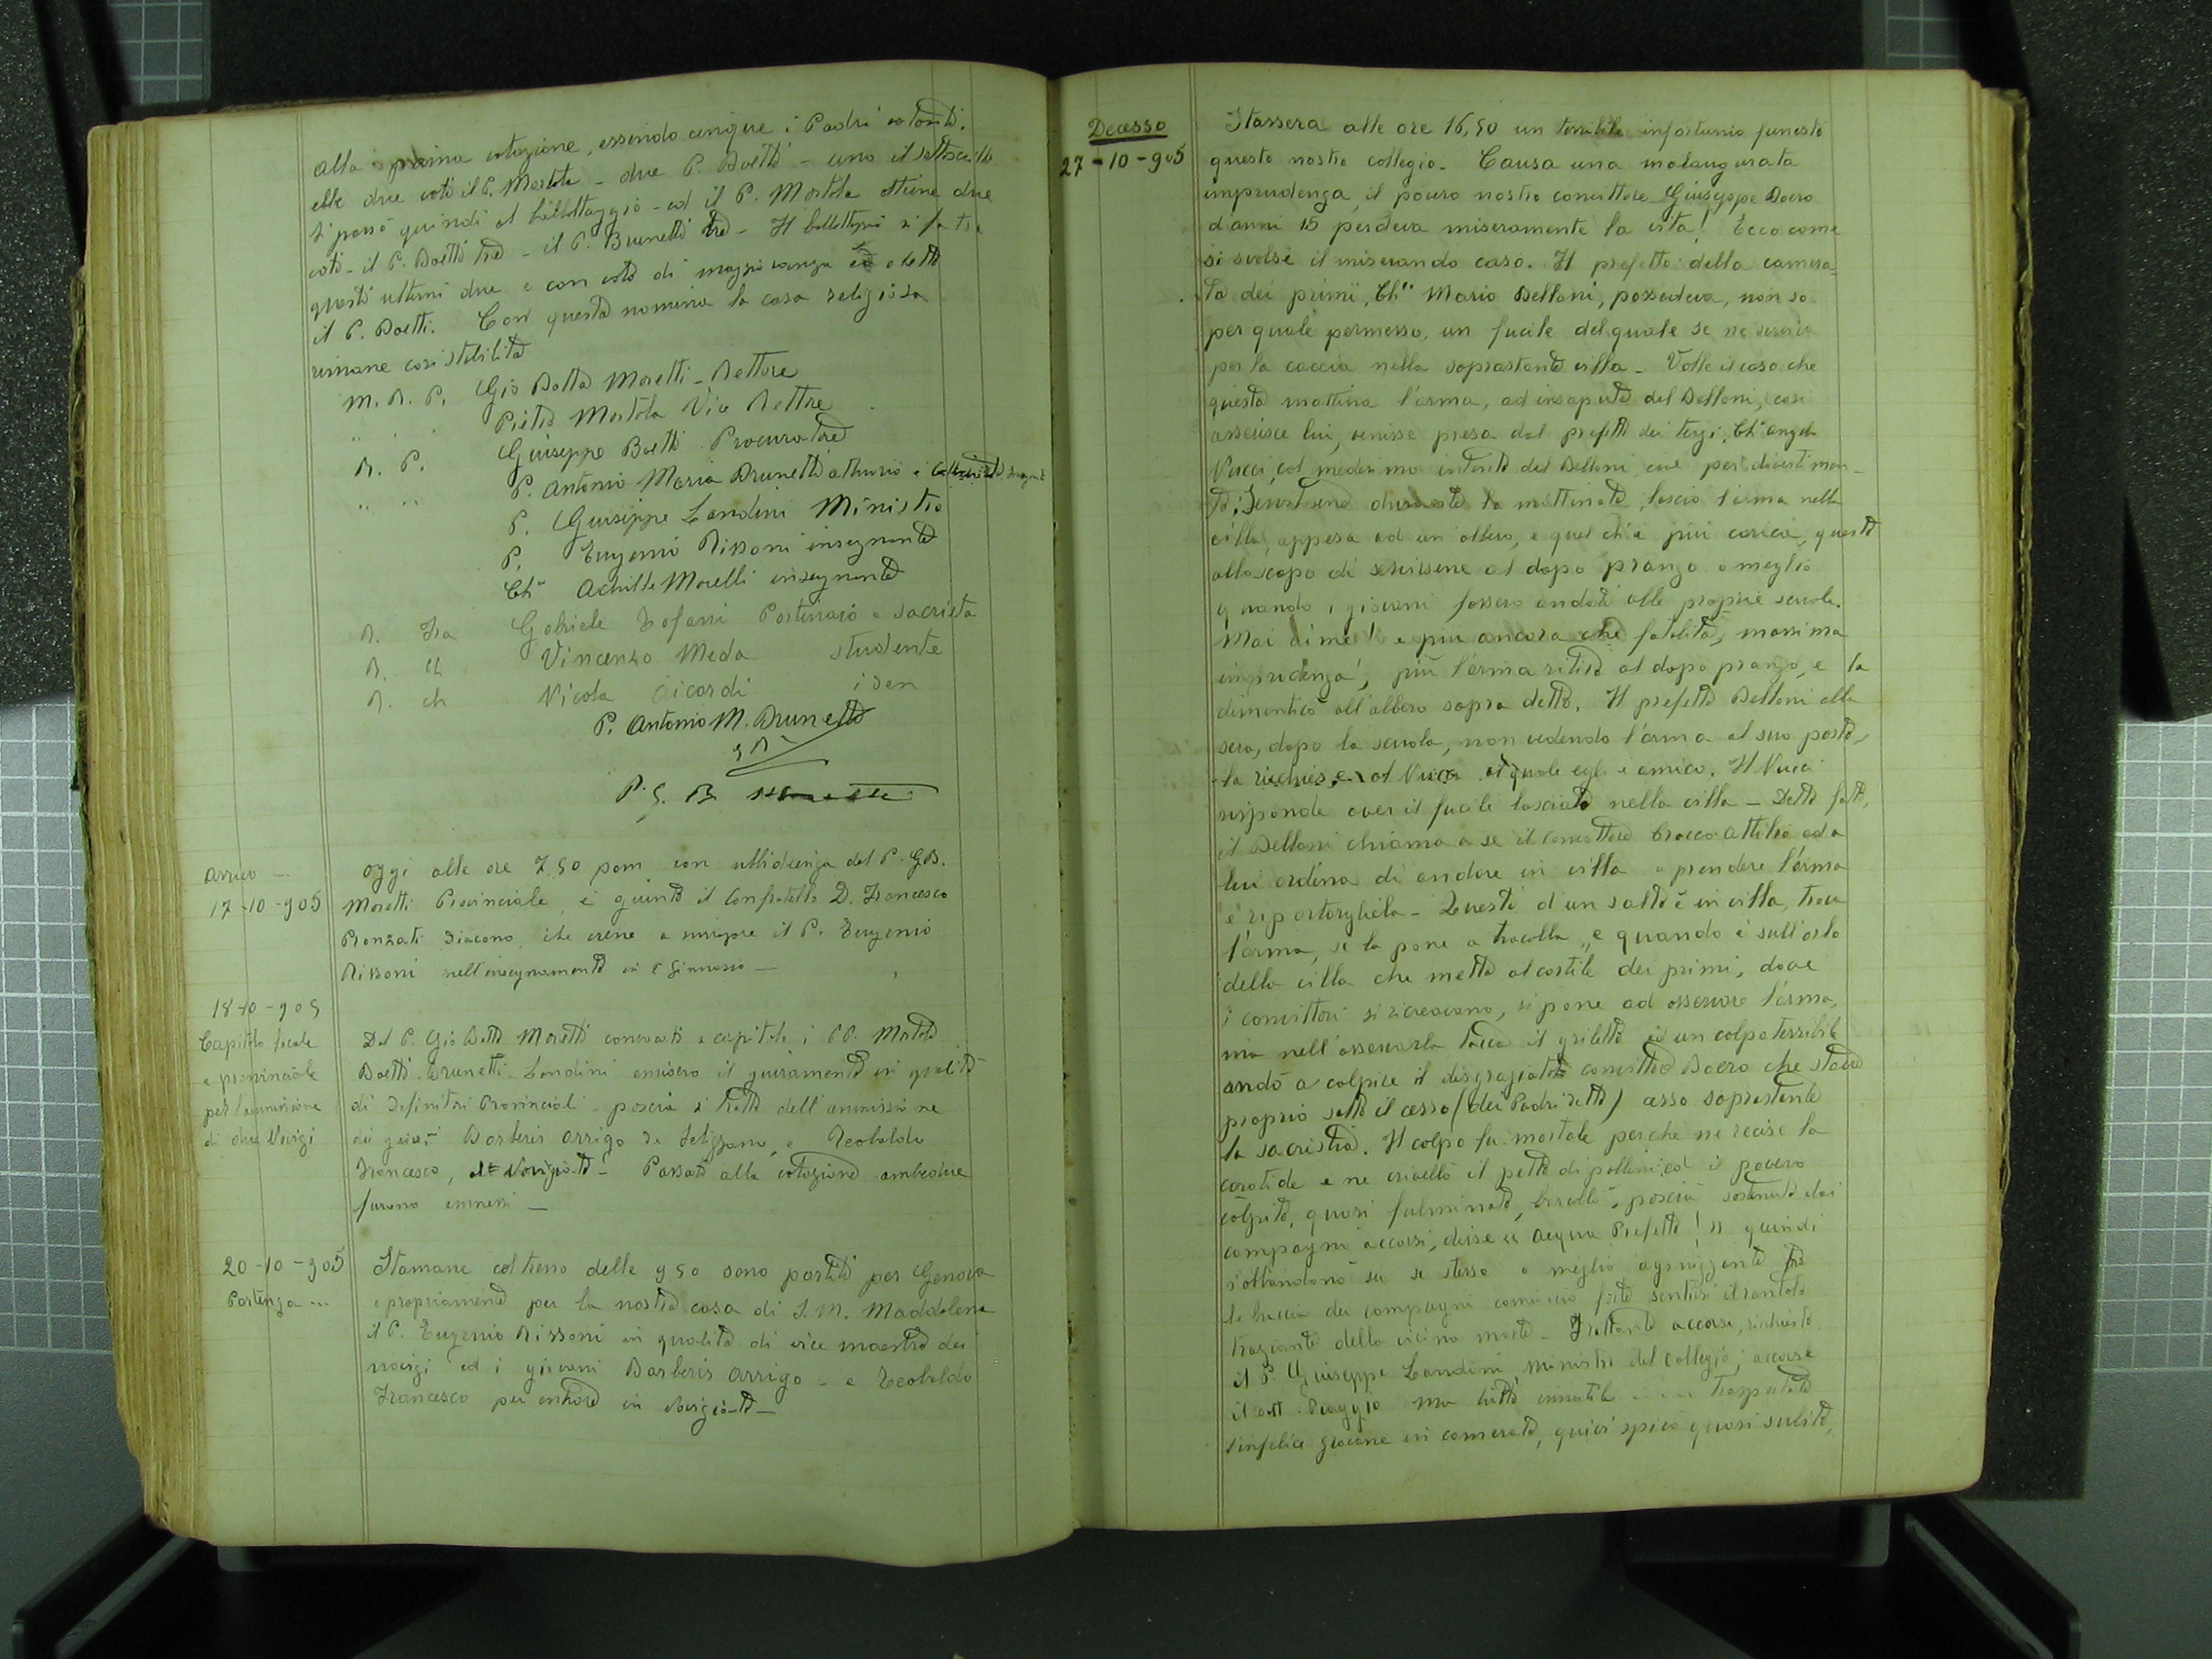 alla prima votazione, essendo cinque i Padri votanti.
ebbe due voti il P. Mortola - due P. Boetti - uno il sottoscritto
Si passò quindi al ballottaggio - ed il P. Mortola ottiene due
voti - il P. Boetti tre - il P. Brunetti tre - Il ballottaggio si fa tra
questi ultimi due e con voto di maggioranza è eletto
il P. Boetti. Con questa nomina la casa religiosa
rimane così stabilita
M. R. P. Gio Batta Moretti - Rettore
" " " Pietro Mortola Vice Rettore
R. P. Giuseppe Boetti Procuratore
" " P. Antonio Maria Brunetti attuario e
P. Giuseppe Landini Ministro
P. Eugenio Rissoni insegnante
Ch° Achille Morelli insegnante
R. Fra Gabriele Trofani Portinaio e sacrista
R. ch Vincenzo Meda studente
R. ch Nicola Sicardi iden
P. Antonio M. Brunetti
P. G. B. Moretti
Arrivo ...
17-10-905
Oggi alle ore 7,50 pom con ubbidienza del P. G.B.
Moretti Provinciale, è giunto il Confratello D. Francesco
Pronzati Diacono, che viene a surrogare il P. Eugenio
Rissoni nell'insegnamento in Ginnasio -
18-10-905
Capitolo locale
e provinciale
per l'ammissione
di due Novizi
Dal P. Gio Batta Moretti convocati a capitolo i PP. Mortola
Boetti - Brunetti - Landini emisero il giuramento in qualità
di Definitori Provinciali - poscia si trattò dell'ammissione
dei giovani Barberis Arrigo di e Teobaldo
Francesco, al Noviziato - Passati alla votazione ambedue
furono ammessi -
20-10-905
Partenza ...
Stamane col treno delle 9 50 sono partiti per Genova
e propriamente per la nostra casa di S. M. Maddalena
il P. Eugenio Rissoni in qualità di vice maestro dei
novizi ed i giovani Barberis Arrigo - e Teobaldo
Francesco per entrare in Noviziato -
Decesso
27-10-905
Stassera alle ore 16,50 un terribile infortunio funestò
questo nostro collegio. Causa una malaugurata
imprudenza, il povero nostro convittore Giuseppe Boero
d'anni 15 perdeva miseramente la vita! Ecco come
si svolse il miserando caso. Il prefetto della camera-
ta dei primi, Ch° Mario Belloni, possedeva, non so
per quale permesso, un fucile del quale se ne serviva
per la caccia nella soprastante villa - Volle il caso che
questa mattina l'arma, ad insaputa del Belloni, così
asserisce lui, venisse presa dal prefetto dei terzi, Ch° Angelo
Vucci, col medesimo intento del Belloni, cioè per divertimen-
to; Servitosene durante la mattinata, lasciò l'arma nella
villa, appesa ad un albero, e quel ch'è più carica, questo
allo scopo di servirsene al dopo pranzo o meglio
quando i giovani fossero andati alle proprie scuole.
Mai aimé! e più ancora che fatalità, massima
imprudenza, più l'arma ritirò al dopo pranzo, e la
dimenticò all'albero sopra detto. Il prefetto Belloni alla
sera, dopo la scuola, non vedendo l'arma al suo posto,
la richiese al Vucci al quale egli è amico. Il Vucci
risponde aver il fucile lasciato nella villa - Detto fatto,
il Belloni chiama a se il convittore Crocco Attilio ed a
lui ordina di andare in villa a prendere l'arma
e riportargliela - Questi d'un salto è in villa, trova
l'arma, se la pone a tracolla, e quando è sull'orlo
della villa che mette al cortile dei primi, dove
i convittori si ricreavano, si pone ad osservare l'arma,
ma nell'osservarla tocca il griletto ed un colpo terribile
andò a colpire il disgraziato convittore Boero che stava
proprio sotto il cesso (dei Padri detto) cesso soprastante
la sacristia. Il colpo fu mortale perchè ne recise la
carotide e ne crivellò il petto di pallini; ed il povero
colpito, quasi fulminato, barcollò, poscia sostenuto dai
compagni accorsi, disse « Acqua Prefetto! » quindi
s'abbandonò su se stesso o meglio agonizzante fra
le braccia dei compagni cominciò farsi sentire il rantolo
straziante della vicina morte - Frattanto accorse, richiesto
il P. Giuseppe Landini, ministro del collegio; accorse
il dott. Piaggio ma tutto inutile .... Trasportato
l'infelice giovane in camerata, quivi spirò quasi subito,